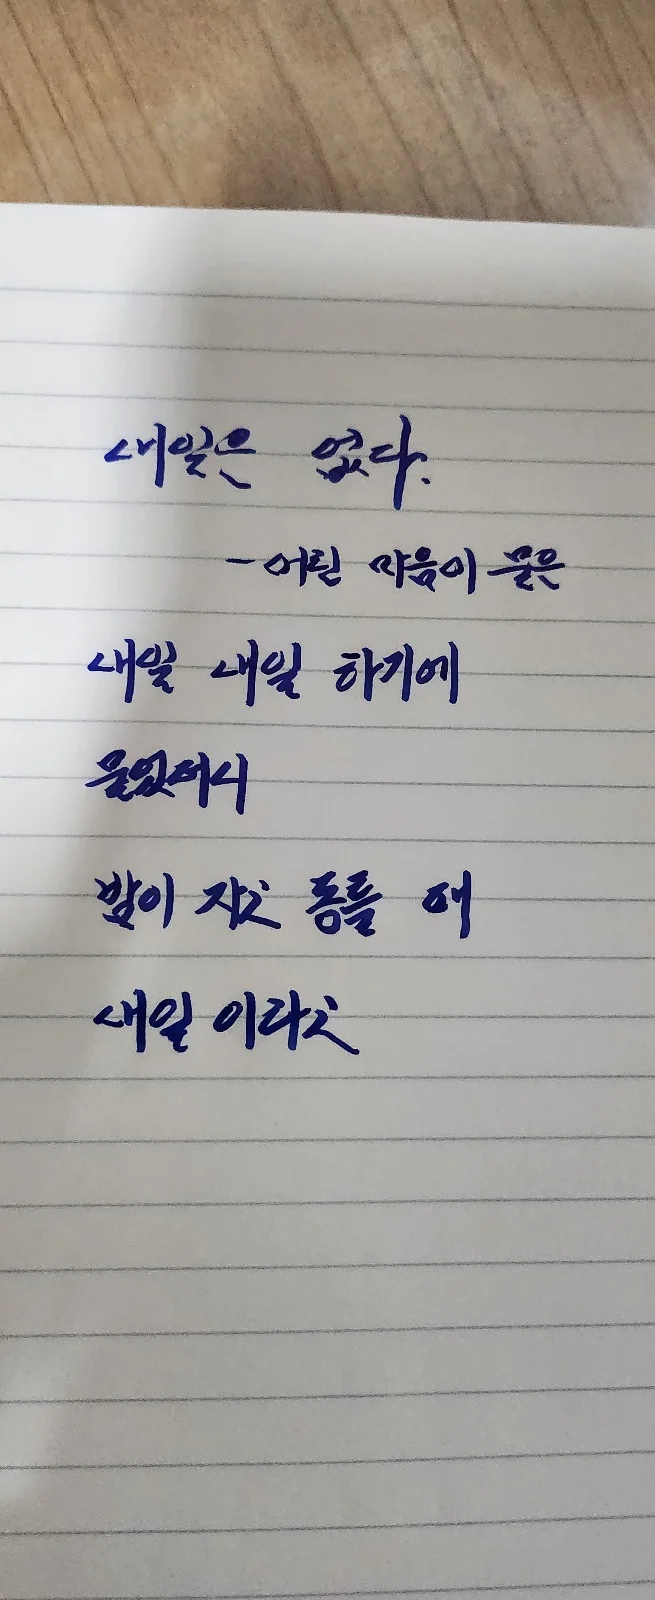 내일은 없다.
- 어린 마음이 물은
내일 내일 하기에
물었더니
밤이 자고 동틀 때
내일 이라고